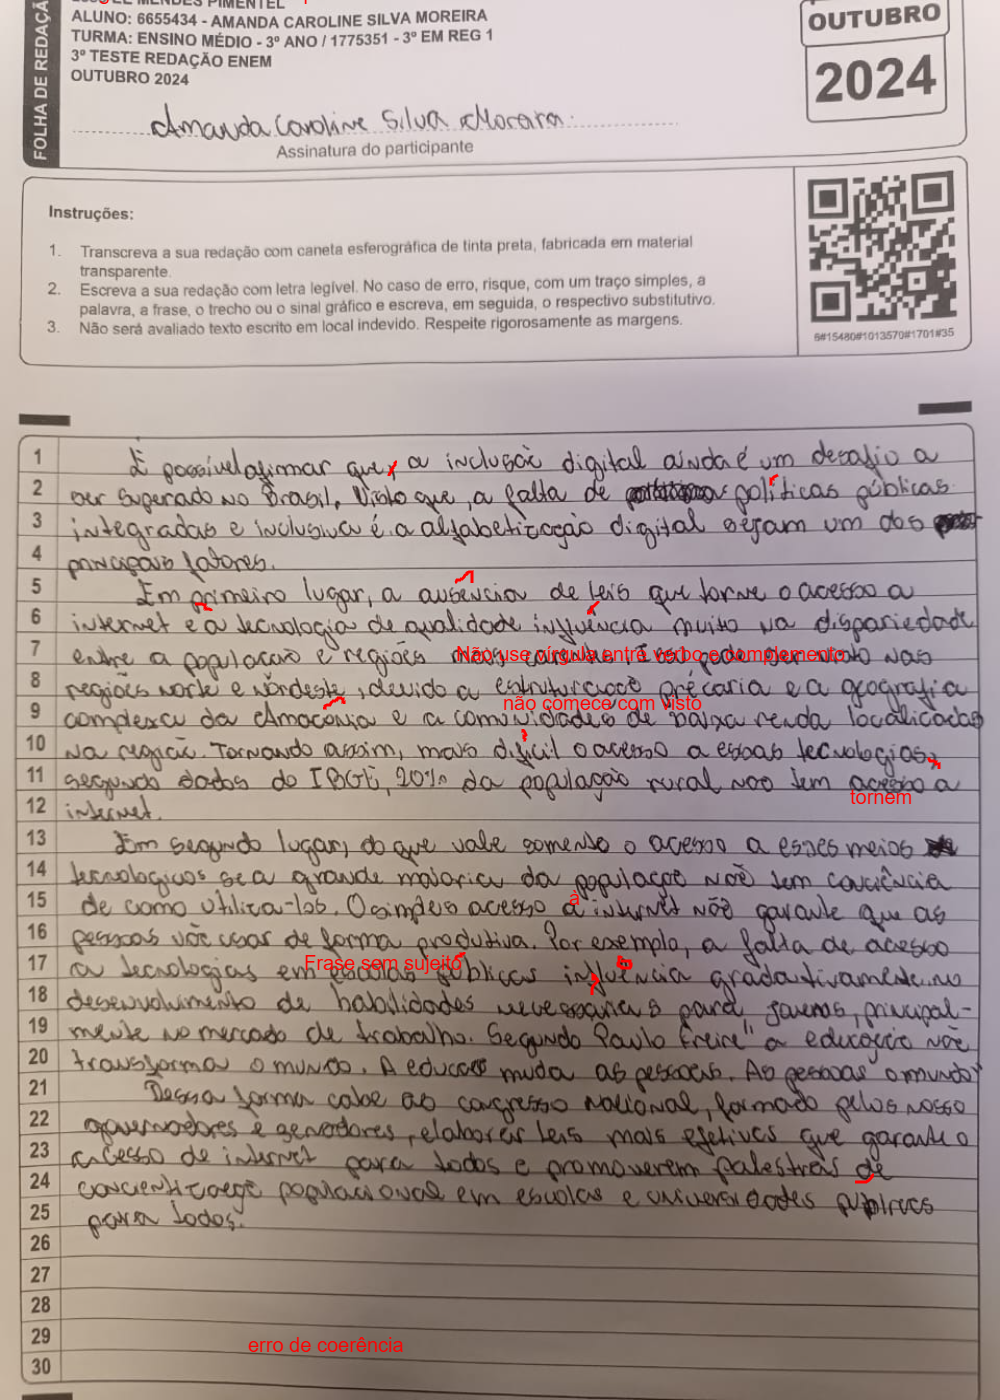 MENDES PIMENTEL
ALUNO: 6655434 - AMANDA CAROLINE SILVA MOREIRA
TURMA: ENSINO MÉDIO - 3º ANO / 1775351 - 3º EM REG 1
3º TESTE REDAÇÃO ENEM
OUTUBRO 2024
FOLHA DE REDAÇÃ
OUTUBRO
2024
Amanda Caroline Silva Moreira
Assinatura do participante
Instruções:
1. Transcreva a sua redação com caneta esferográfica de tinta preta, fabricada em material
transparente.
2. Escreva a sua redação com letra legível. No caso de erro, risque, com um traço simples, a
palavra, a frase, o trecho ou o sinal gráfico e escreva, em seguida, o respectivo substitutivo.
3. Não será avaliado texto escrito em local indevido. Respeite rigorosamente as margens.
6#15480#1013570#1701#35
1 É possível afirmar que, a inclusão digital ainda é um desafio a
2 ser superado no Brasil. Visto que, a falta de políticas públicas
3 integradas e inclusiva é a alfabetização digital sejam um dos
4 principais fatores.
5 Em primeiro lugar, a ausência de leis que torne o acesso a
6 internet e a tecnologia de qualidade influência muito na dispariedade
7 entre a população e regiões mais carentes, isso pode ser visto nas
Não use vírgula entre verbo e complemento
8 regiões norte e nordeste, devido a estruturação précaria e a geografia
não comece com visto
9 complexa da Amazônia e a comunidades de baixa renda localizadas
10 na região. Tornando assim, mais difícil o acesso a essas tecnologias,
11 segundo dados do IBGE, 20% da população rural não tem acesso a
tornem
12 internet.
13 Em segundo lugar, do que vale somente o acesso a esses meios
14 tecnologicos se a grande maioria da população não tem conciência
15 de como utiliza-los. O simples acesso a internet não garante que as
à
16 pessoas vão usar de forma produtiva. Por exemplo, a falta de acesso
Frase sem sujeito
17 a tecnologias em escolas públicas influência gradativamente no
18 desenvolvimento de habilidades necessarias para jovens, principal-
19 mente no mercado de trabalho. Segundo Paulo Freire " a educação não
20 transforma o mundo. A educação muda as pessoas. As pessoas o mundo"
21 Dessa forma cabe ao congresso nacional, formado pelos nosso
22 governadores e senadores, elaborar leis mais efetivas que garante o
23 acesso de internet para todos e promoverem palestras de
24 concientização populacional em escolas e universidades públicas
25 para todos.
26
27
28
29
erro de coerência
30